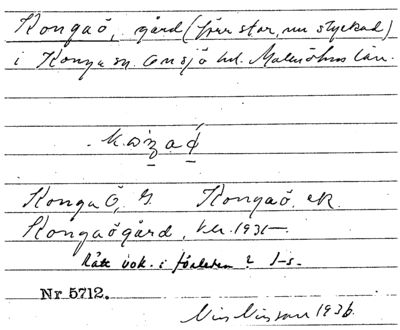 Kongaö, gård (förr stor, nu styckad)
i Konga sn. Onsjö hd. Malmöhus län.
Kongaö, G. Kongaö. ek.
Kongaögård, kls. 1931–.
Rätt vok. i förleden? I-s.
Nr 5712.
Nils Nilsson 1936.